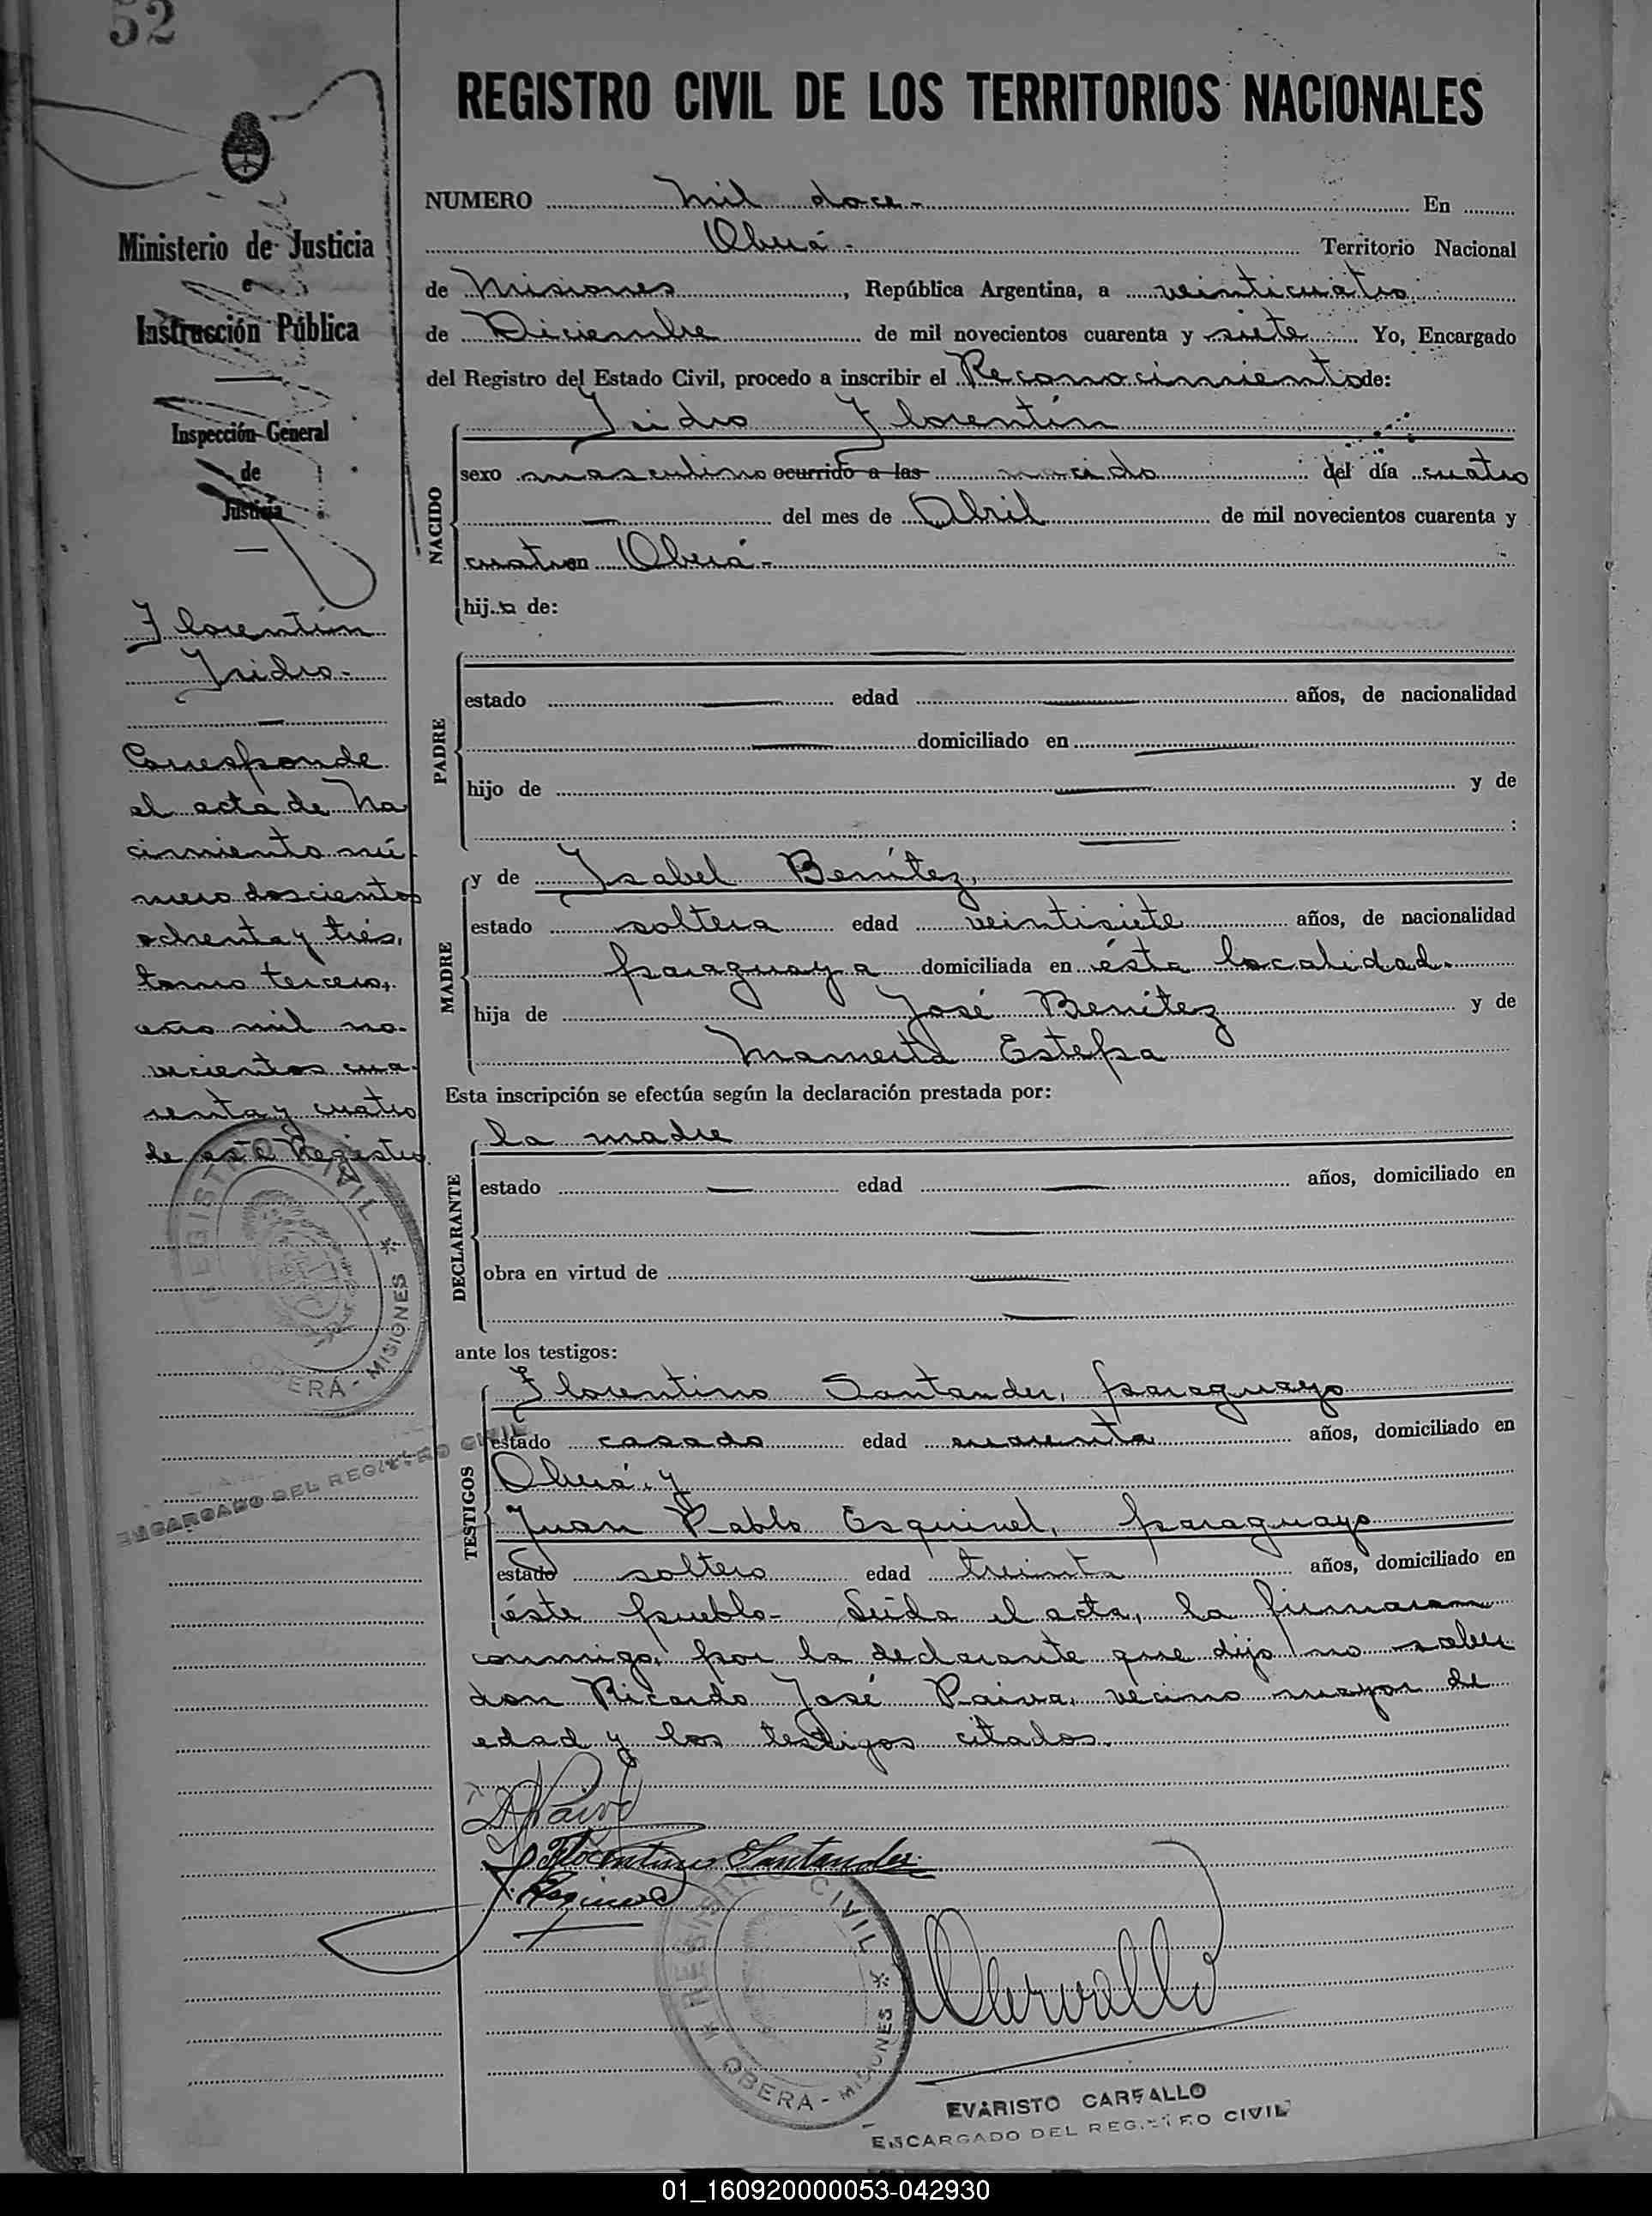 52
REGISTRO CIVIL DE LOS TERRITORIOS NACIONALES
Ministerio de Justicia
Instrucción Pública
Inspección General
de
Justicia
Florentín
Isidro.-
Corresponde
el acta de Na
cimiento nú-
mero doscientos
ochenta y trés,
tomo tercero,
año mil no-
vecientos cua-
renta y cuatro
de este Registro.
REGISTRO CIVIL * OBERA - MISIONES
ENCARGADO DEL REGISTRO CIVIL
NUMERO Mil doce.- En
Oberá.- Territorio Nacional
de Misiones, República Argentina, a veinticuatro
de Diciembre de mil novecientos cuarenta y siete Yo, Encargado
del Registro del Estado Civil, procedo a inscribir el Reconocimiento de:
NACIDO
Isidro Florentín
sexo masculino ocurrido a las nacido del día cuatro
del mes de Abril de mil novecientos cuarenta y
cuatro en Oberá.-
hijo de:
PADRE
estado edad años, de nacionalidad
domiciliado en
hijo de y de
:
MADRE
y de Isabel Benítez,
estado soltera edad veintisiete años, de nacionalidad
paraguaya domiciliada en ésta localidad.
hija de José Benítez y de
Mamerta Estepa
Esta inscripción se efectúa según la declaración prestada por:
DECLARANTE
la madre
estado edad años, domiciliado en
obra en virtud de
ante los testigos:
TESTIGOS
Florentino Santander, paraguayo
estado casado edad cuarenta años, domiciliado en
Oberá, y
Juan Pablo Esquivel, paraguayo
estado soltero edad treinta años, domiciliado en
éste pueblo- Leída el acta, la firmaron
conmigo, por la declarante que dijo no saber
don Ricardo José Paiva, vecino mayor de
edad y los testigos citados.
Paiva
Florentino Santander
J. Esquivel
REGISTRO CIVIL * OBERA - MISIONES *
Carvallo
EVARISTO CARVALLO
ENCARGADO DEL REGISTRO CIVIL
01_160920000053-042930